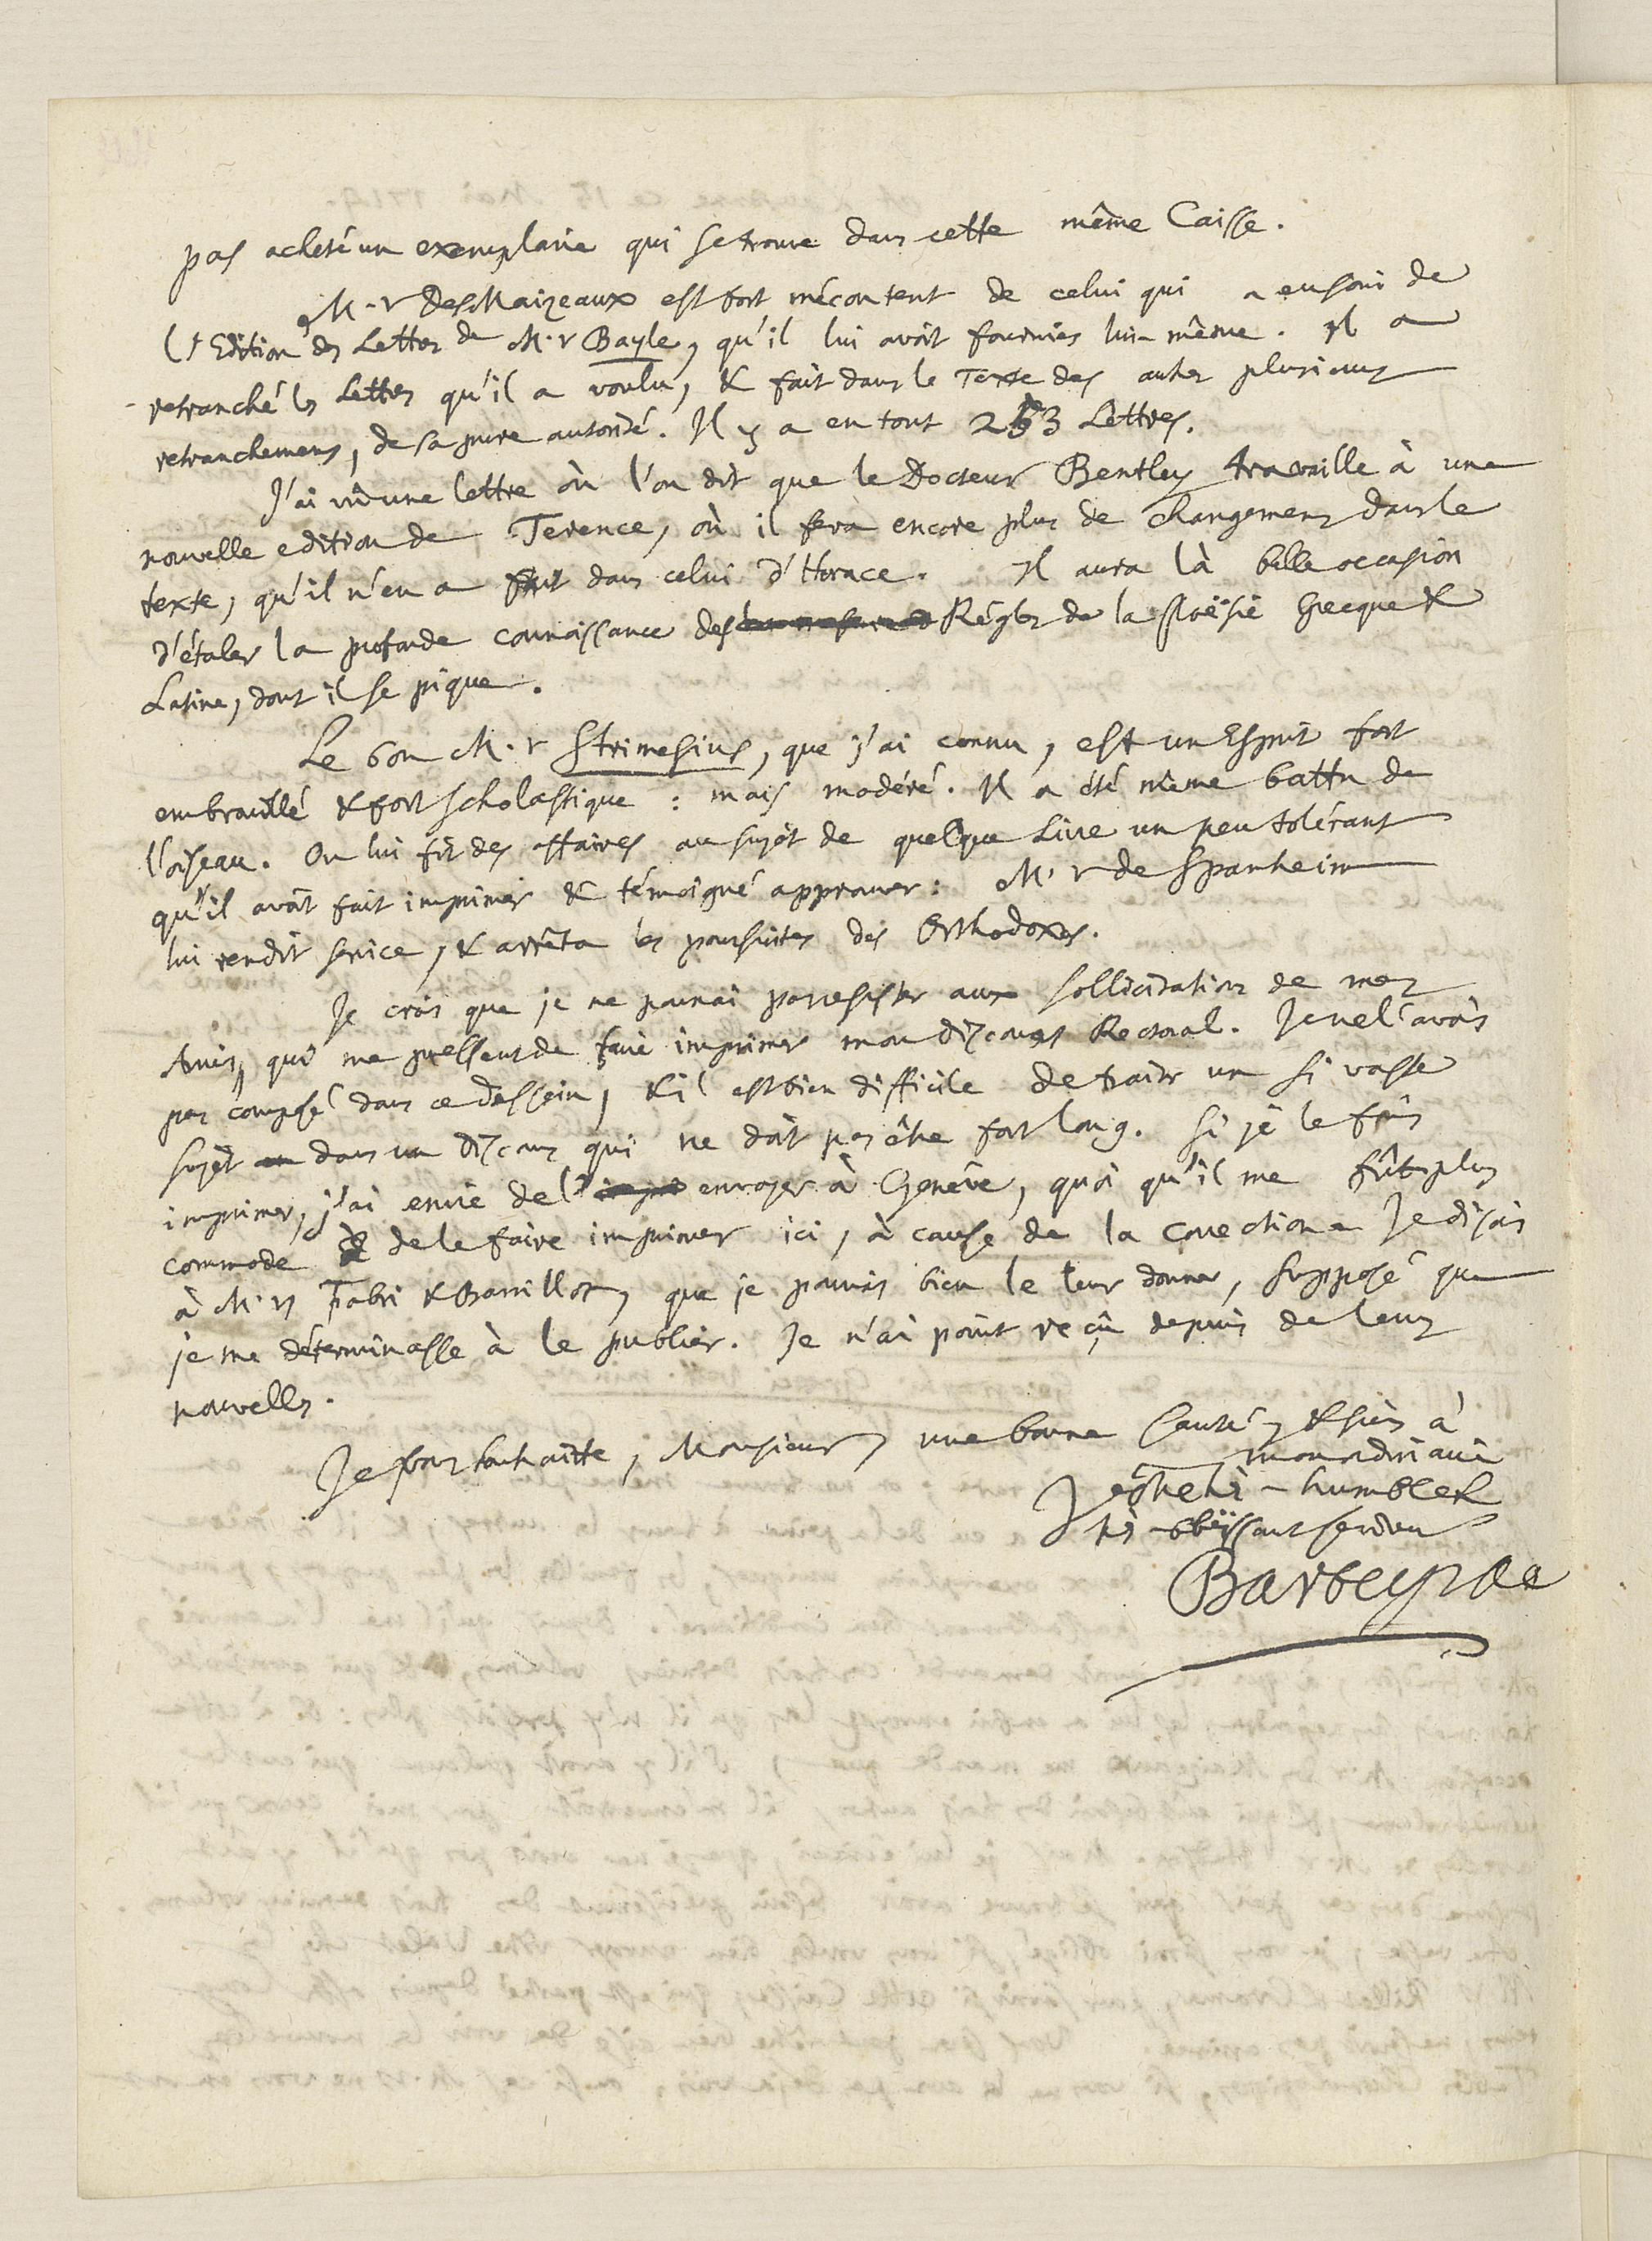 pas acheté un exemplaire qui se trouve dans cette même Caisse.
M.r DesMaizeaux est fort mécontent de celui qui a eu soin de
l'Edition des Lettres de M.r Bayle, qu'il lui avoit fournies lui-même. Il a
retranché les Lettres qu'il a voulu, & fait dans le Texte des autres plusieurs
retranchemens, de sa pure autorité. Il y a en tout 253 Lettres.
J'ai vû une lettre où l'on dit que le Docteur Bentley travaille à une
nouvelle edition de Terence, où il fera encore plus de changemens dans le
texte, qu'il n'en a fait dans celui d'Horace. Il aura là belle occasion
d'étaler la profonde connoissance des Régles de la Poësie Grecque &
Latine, dont il se pique.
Le bon M.r Strimesius, que j'ai connu, est un Esprit fort
embrouillé & fort scholastique : mais modéré. Il a été même battu de
l'oiseau. On lui fit des affaires au sujet de quelque Livre un peu tolérant
qu'il avoit fait imprimer & témoigné approuver : M.r de Spanheim
lui rendit service, & arrêta les poursuites des Orthodoxes.
Je crois que je ne pourrai pas resister aux sollicitations de mes
Amis, qui me pressent de faire imprimer mon discours Rectoral. Je ne l'avois
pas composé dans ce dessein, & il est bien difficile de traiter un si vaste
sujet dans un discours qui ne doit pas être fort long. Si je le fais
imprimer, j'ai envie de l'envoyer à Genéve, quoi qu'il me fût plus
commode de le faire imprimer ici, à cause de la correction. Je disois
à M.rs Fabri & Barrillot, que je pourrois bien le leur donner, supposé que
je me déterminasse à le publier. Je n'ai point reçû depuis de leurs
nouvelles.
Je vous souhaitte, Monsieur, une bonne santé, & suis à
mon ordinaire
Vôtre très-humble &
très-obéïssant serviteur
Barbeyrac